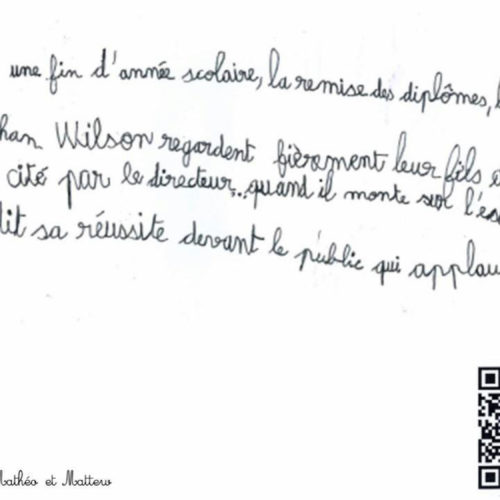 une fin d'année scolaire, la remise des diplômes,
han Wilson regardent fièrement leur fils
cité par le directeur, quand il monte sur l'es
dit sa réussite devant le public qui applau
Mathéo et Mattew